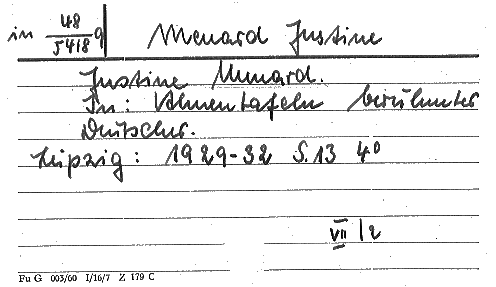 in 48/5418 q Menard Justine
Justine Menard.
In: Ahnentafeln berühmter
Deutscher.
Leipzig: 1929-32 S. 13 4°
VII / 2
Fu G 003/60 I/16/7 Z 179 C